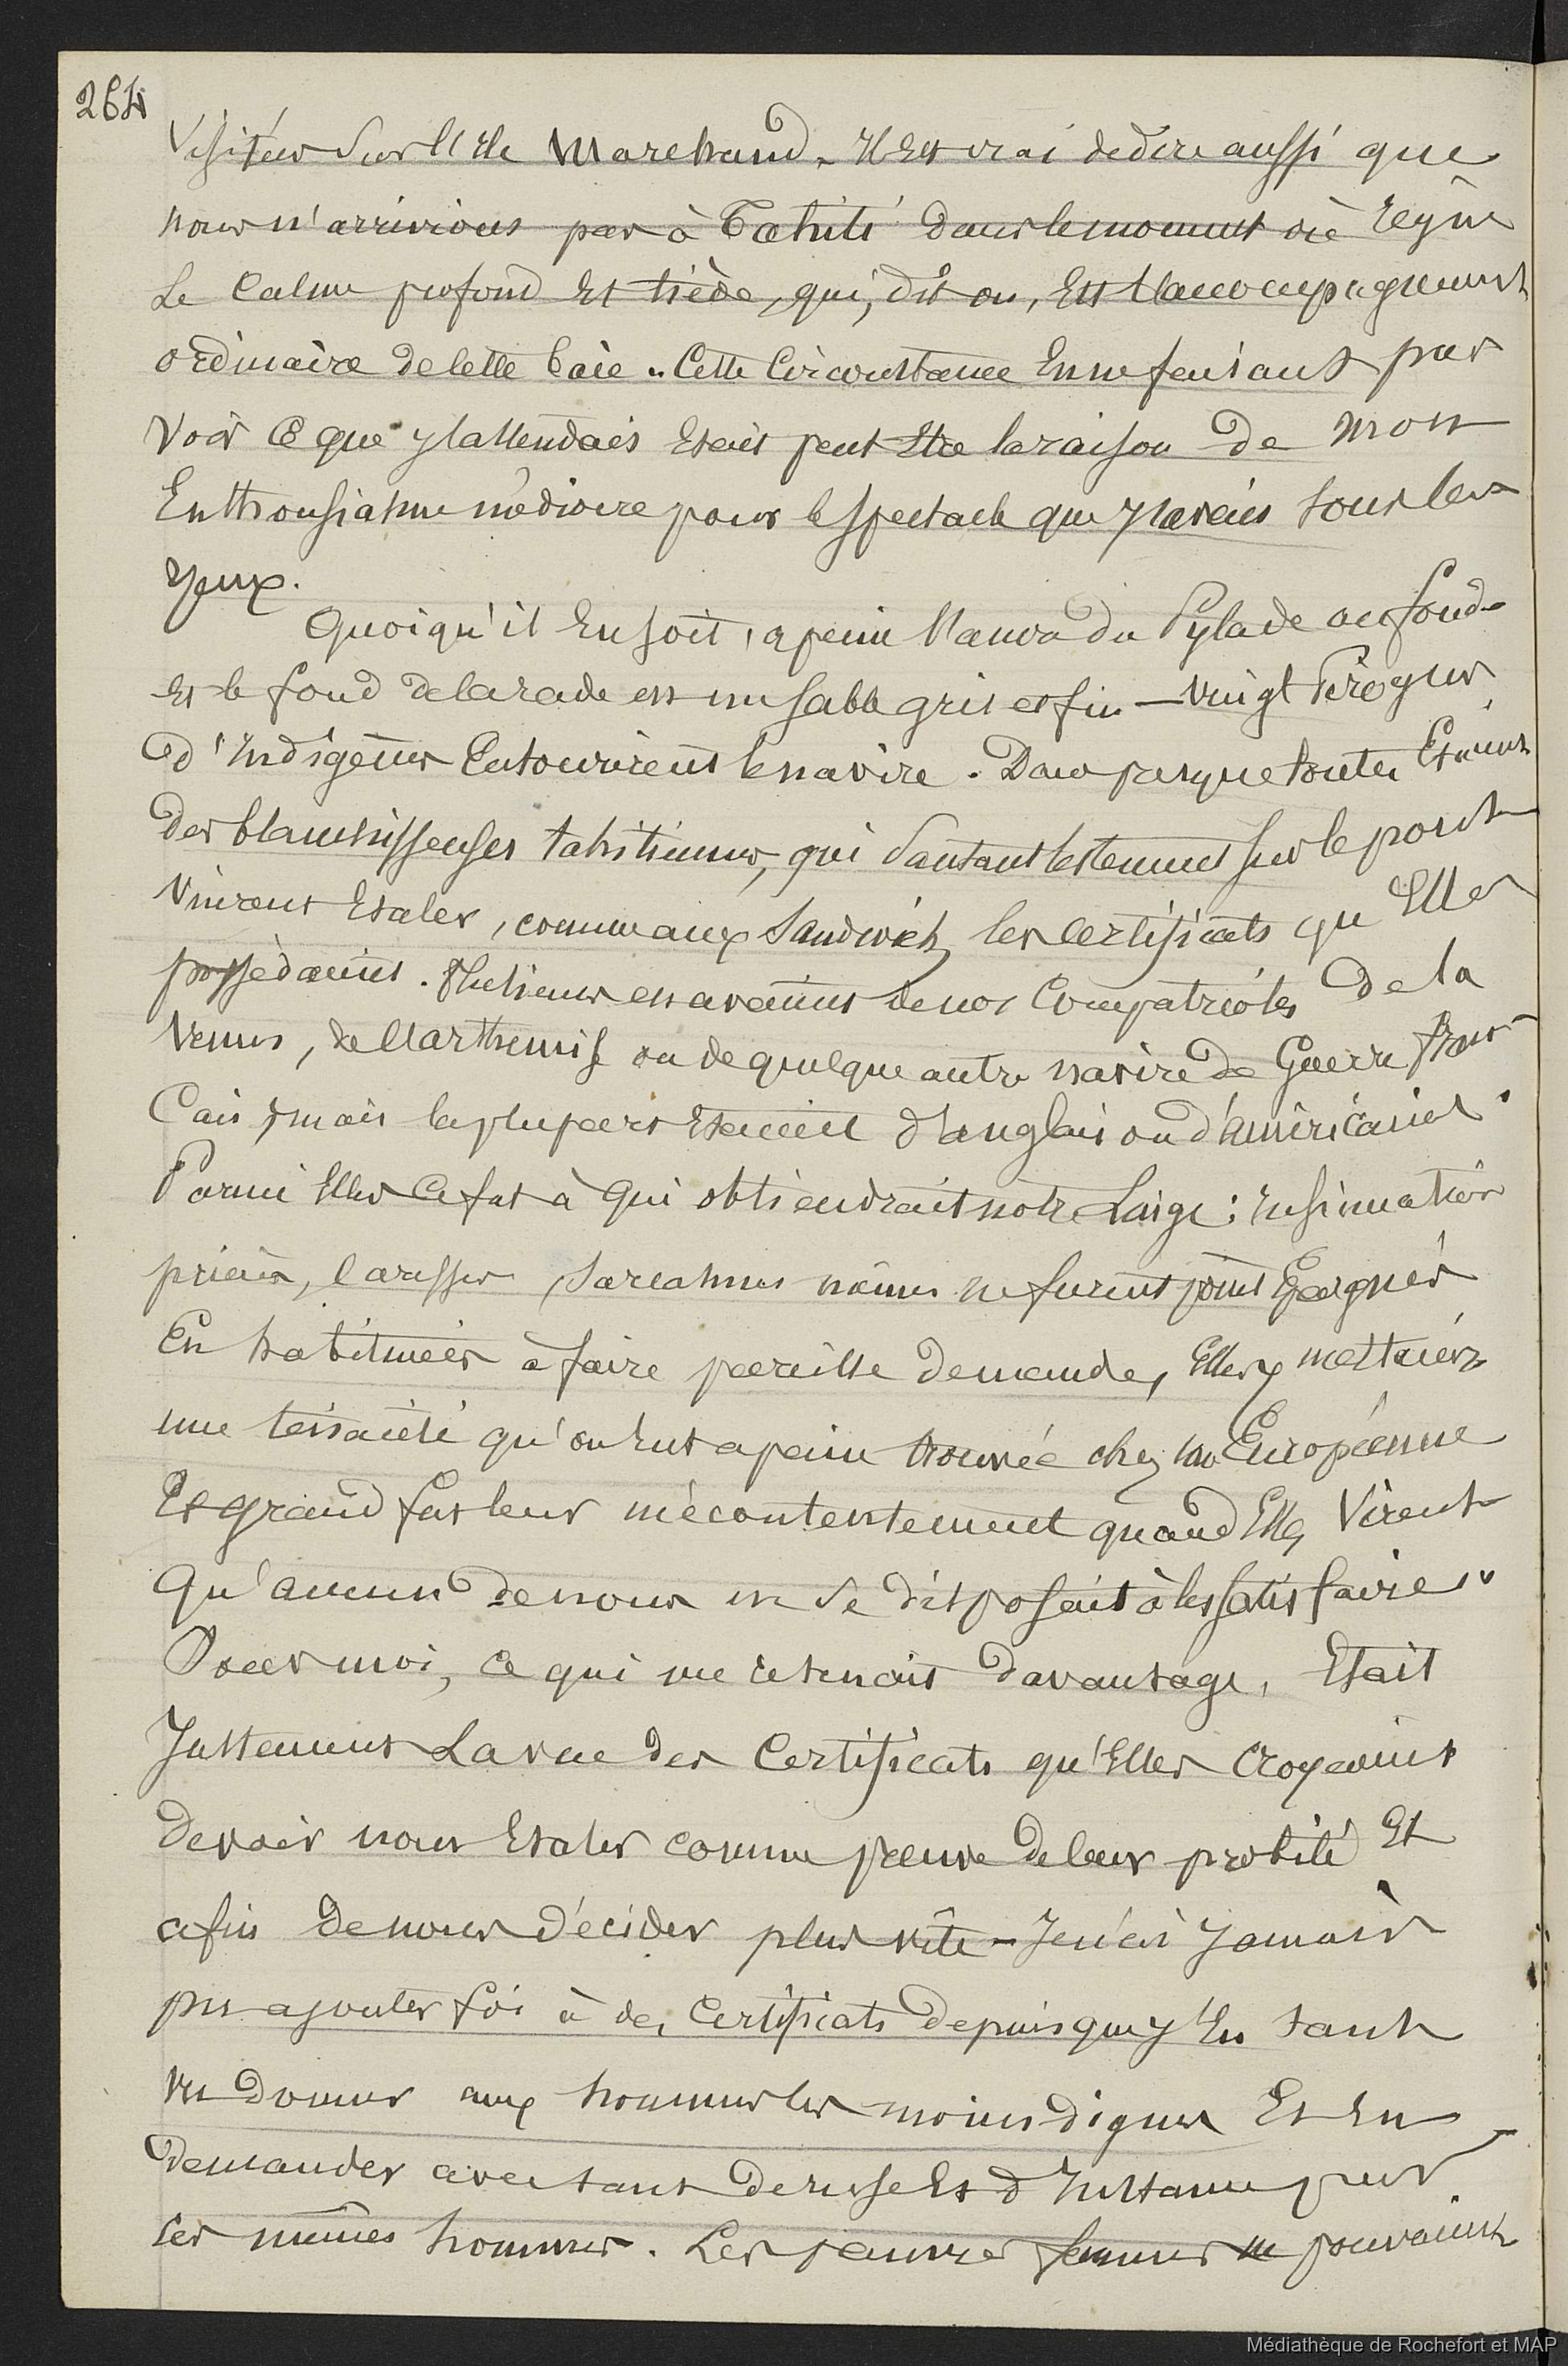 264
Visiter sur l'Ile Marchand. Il est vrai de dire aussi que
nous n'arrivions pas à Tahiti dans le moment où règne
Le Calme profond et tiède, qui, dit on, Est l'accompagnement
ordinaire de cette baie. Cette Circonstance En ne faisant pas
Voir Ce que j'attendais Etait peut Etre la raison de mon
Enthousiasme médiocre pour le spectacle que j'avais sous les
yeux.
Quoiqu'il En soit, apeine l'ancre du Pylade au fond
Et le fond de la rade est un sable gris et fin — Vingt Pirogues
d'Indigènes Entourèrent le navire. Dans presque toutes Etaient
des blanchisseuses tahitiennes, qui Sautant lestement sur le pont
Vinrent Etaler, comme aux Sandwich, les Certificats qu'Elles
possèdaient. Plusieurs en avaient de nos Compatriotes de la
Venus, de l'arthemise ou de quelque autre navire de Guerre fran
Cais, mais la plupart Etaient d'anglais ou d'américains.
Parmi Elles Ce fut à Qui obtiendrait notre Linge : insinuation
prières, Caresses, Sarcasmes mêmes ne furent point Epargnés
En habituées à faire pareille demande, Elles y mettaient
une ténacité qu'on Eut apeine trouvée chez une Européenne
Et grand fut leur mécontentement quand Elles Virent
Qu'aucun de nous ne Se disposait à les satisfaire.
Pour moi, ce qui me retenait davantage, Etait
Justement La vue des Certificats qu'Elles Croyaient
devoir nous Etaler comme preuve de leur probité Et
afin de nous décider plus vite — Je n'ai Jamais
pu ajouter foi à des Certificats depuis que j'En tant
vu donner aux hommes les moins dignes Et En
demander avec tant de ruse Et d'Instance par
ces mêmes hommes. Les pauvres femmes ne pouvaient
Médiathèque de Rochefort et MAP